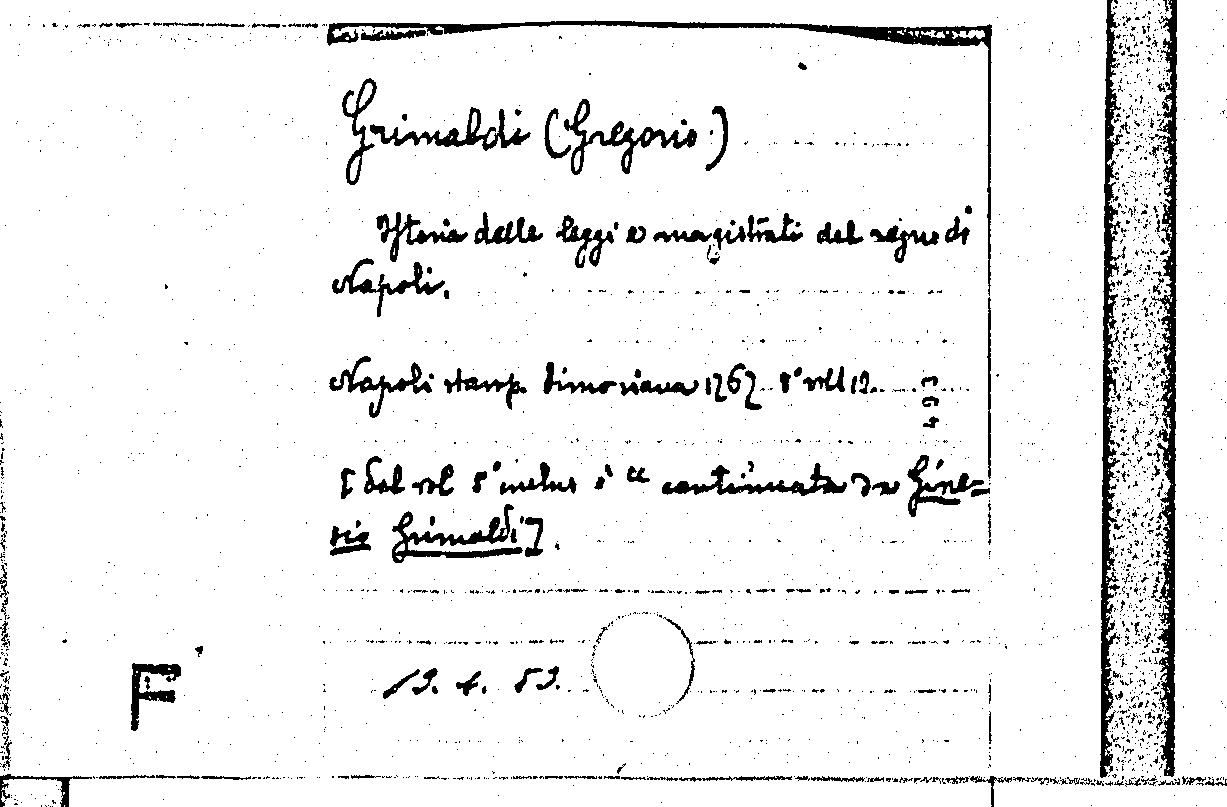 Grimaldi (Gregorio)
Istoria delle leggi e magistrati del regno di
Napoli.
Napoli stamp. Simoniana 1767 8° voll 12.
493
[dal vol 5° inclus è "continuata da Gine-
sio Grimaldi].
19. 4. 59.
F